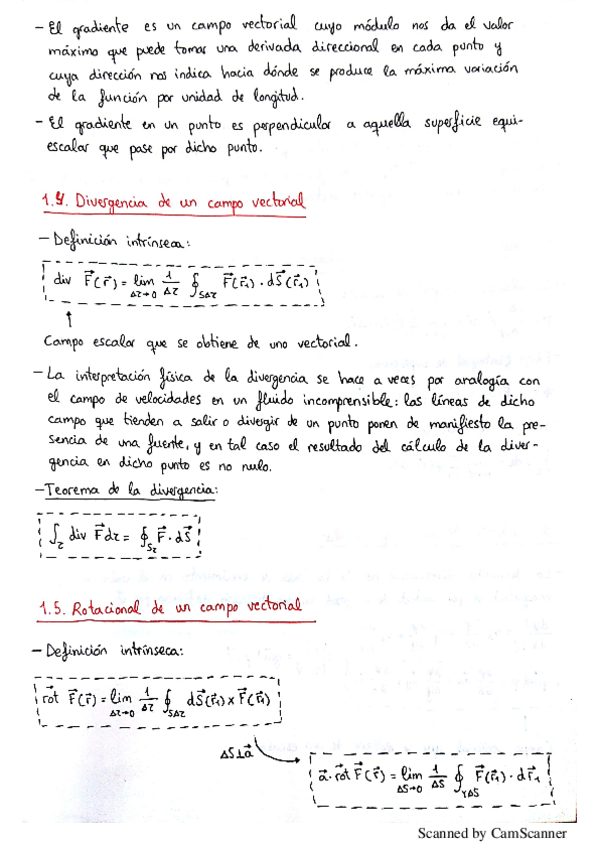 - El gradiente es un campo vectorial cuyo módulo nos da el valor
máximo que puede tomar una derivada direccional en cada punto y
cuya dirección nos indica hacia dónde se produce la máxima variación
de la función por unidad de longitud.
- El gradiente en un punto es perpendicular a aquella superficie equi-
escalar que pase por dicho punto.
1.4. Divergencia de un campo vectorial
- Definición intrínseca:
div F⃗(r⃗) = lim Δτ→0 1/Δτ ∮SΔτ F⃗(r⃗₁) · dS⃗(r⃗₁)
↑
Campo escalar que se obtiene de uno vectorial.
- La interpretación física de la divergencia se hace a veces por analogía con
el campo de velocidades en un fluido incomprensible: las líneas de dicho
campo que tienden a salir o divergir de un punto ponen de manifiesto la pre-
sencia de una fuente, y en tal caso el resultado del cálculo de la diver-
gencia en dicho punto es no nulo.
- Teorema de la divergencia:
∫τ div F⃗ dτ = ∮Sτ F⃗ · dS⃗
1.5. Rotacional de un campo vectorial
- Definición intrínseca:
rot⃗ F⃗(r⃗) = lim Δτ→0 1/Δτ ∮SΔτ dS⃗(r⃗₁) x F⃗(r⃗₁)
ΔS⊥a⃗
a⃗ · rot⃗ F⃗(r⃗) = lim ΔS→0 1/ΔS ∮γΔS F⃗(r⃗₁) · dr⃗₁
Scanned by CamScanner